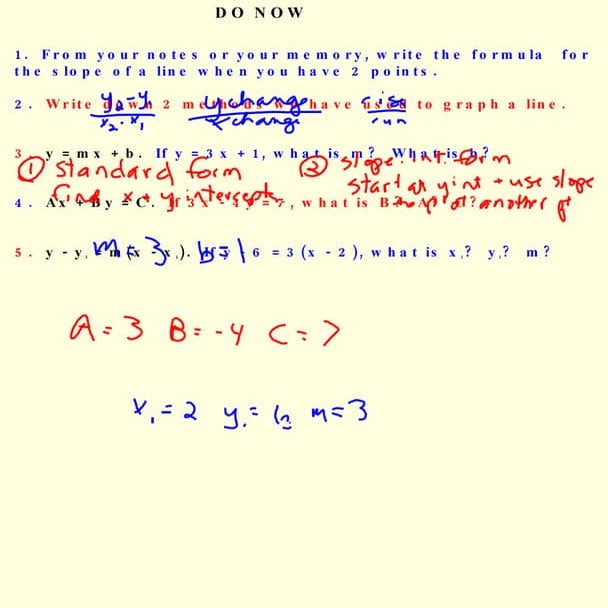 DO NOW
1. From your notes or your memory, write the formula for
the slope of a line when you have 2 points.
y₂-y₁ / x₂-x₁ y change / x change rise / run
2. Write down 2 methods we have used to graph a line.
① standard form ② slope int. form
find x + y intercepts start at y int + use slope
another pt
3. y = mx + b. If y = 3x + 1, what is m? What is b?
m = 3 b = 1
4. Ax + By = C. If 3x - 4y = 7, what is B? A?
A = 3 B = -4 C = 7
5. y - y₁ = m(x - x₁). If y - 6 = 3(x - 2), what is x₁? y₁? m?
x₁ = 2 y₁ = 6 m = 3